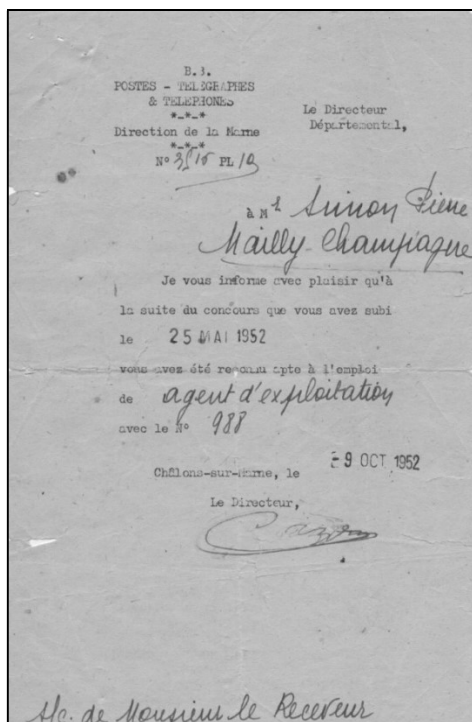 B.3.
POSTES - TELEGRAPHES
& TELEPHONES
*-*-*
Direction de la Marne
*-*-*
N° 3515 PL 10
Le Directeur
Départemental,
à Mr Simon Pierre
Mailly-Champagne
Je vous informe avec plaisir qu'à
la suite du concours que vous avez subi
le 25 MAI 1952
vous avez été reconnu apte à l'emploi
de agent d'exploitation
avec le N° 988
Châlons-sur-Marne, le -9 OCT 1952
Le Directeur,
s/c. de Monsieur le Receveur